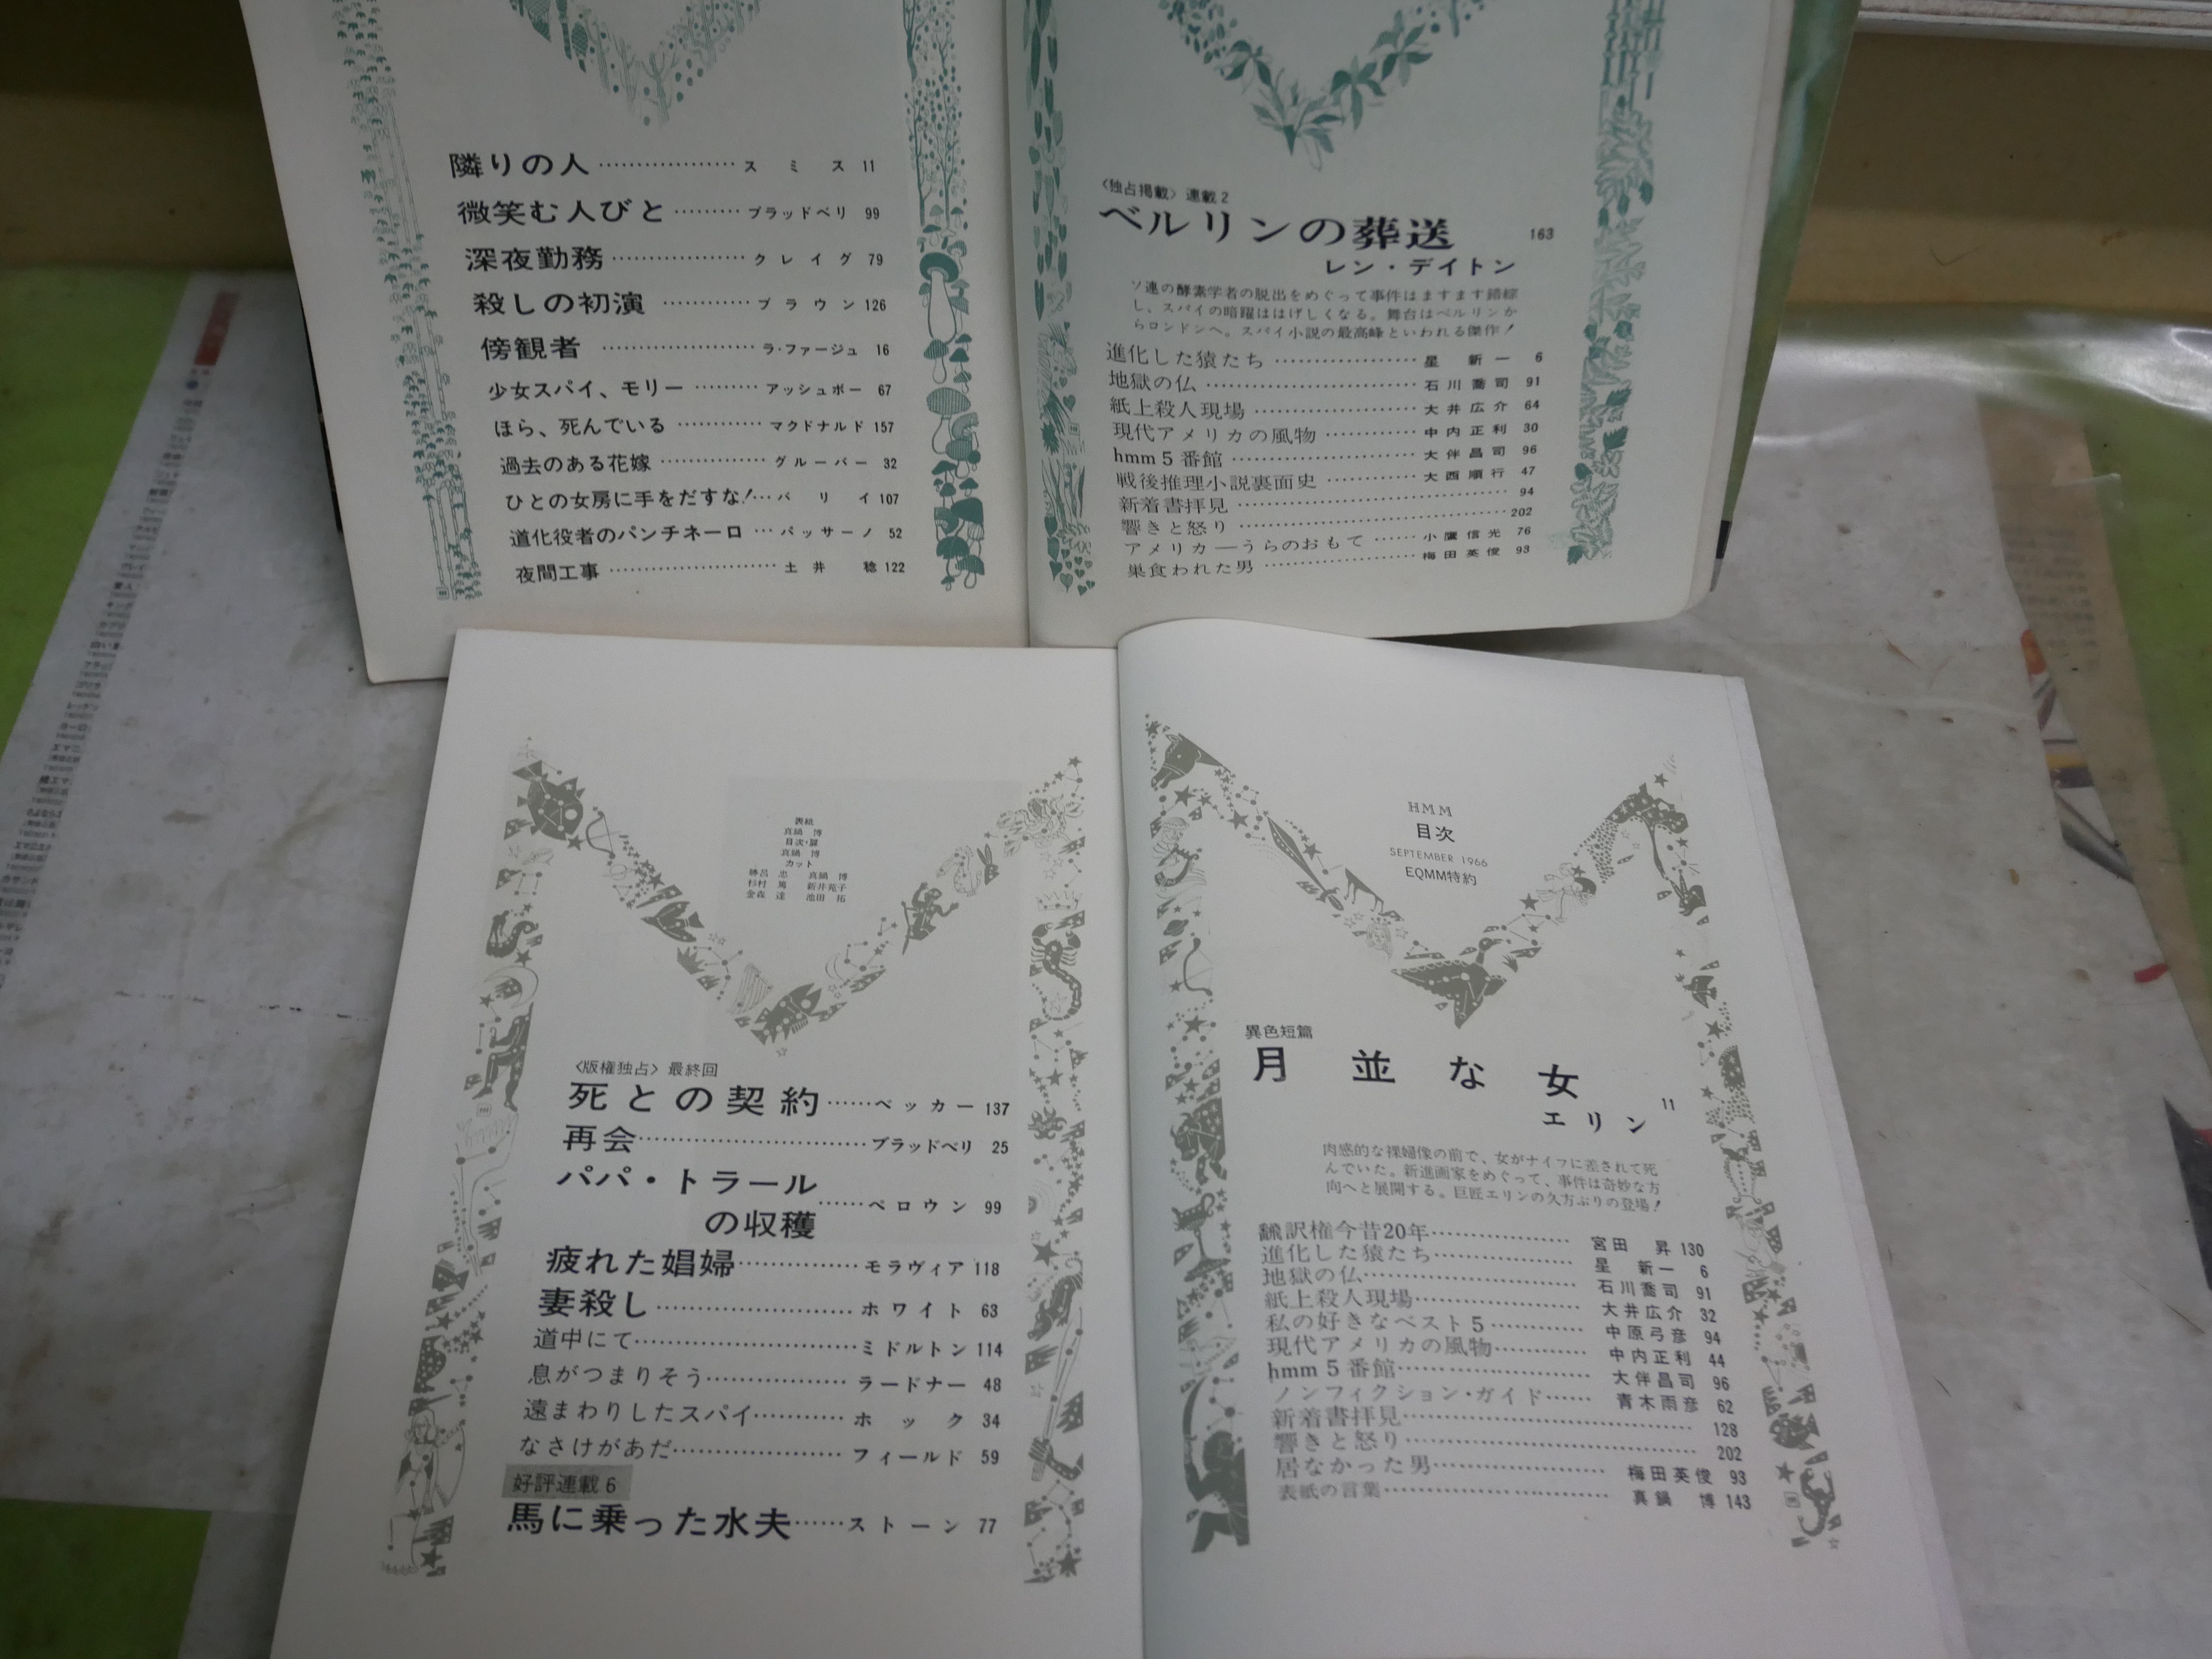 隣りの人………………スミス 11
微笑む人びと………ブラッドベリ 99
深夜勤務………………クレイグ 79
殺しの初演…………ブラウン 126
傍観者…………………ラ・ファージュ 16
少女スパイ、モリー………アッシュボー 67
ほら、死んでいる…………マクドナルド 157
過去のある花嫁……………グルーバー 32
ひとの女房に手をだすな!…バリイ 107
道化役者のパンチネーロ…パッサーノ 52
夜間工事……………………土井 稔 122
〈独占掲載〉連載2
ベルリンの葬送 163
レン・デイトン
ソ連の酵素学者の脱出をめぐって事件はますます錯綜
し、スパイの暗躍ははげしくなる。舞台はベルリンか
らロンドンへ。スパイ小説の最高峰といわれる傑作!
進化した猿たち………………星 新一 6
地獄の仏………………………石川喬司 91
紙上殺人現場…………………大井広介 64
現代アメリカの風物…………中内正利 30
hmm5番館……………………大伴昌司 96
戦後推理小説裏面史…………大西順行 47
新着書拝見……………………94
響きと怒り……………………202
アメリカ―うらのおもて……小鷹信光 76
巣食われた男…………………梅田英俊 93
表紙
真鍋 博
目次・扉
真鍋 博
カット
勝呂 忠 真鍋 博
杉村 篤 新井苑子
金森 達 池田 拓
〈版権独占〉最終回
死との契約……ベッカー 137
再会…………………………ブラッドベリ 25
パパ・トラール
の収穫……ペロウン 99
疲れた娼婦……………モラヴィア 118
妻殺し……………………ホワイト 63
道中にて…………………………ミドルトン 114
息がつまりそう………………ラードナー 48
遠まわりしたスパイ…………ホック 34
なさけがあだ…………………フィールド 59
好評連載6
馬に乗った水夫……ストーン 77
HMM
目次
SEPTEMBER 1966
EQMM特約
異色短篇
月並な女
エリン 11
肉感的な裸婦像の前で、女がナイフに差されて死
んでいた。新進画家をめぐって、事件は奇妙な方
向へと展開する。巨匠エリンの久方ぶりの登場!
飜訳権今昔20年………………宮田 昇 130
進化した猿たち………………星 新一 6
地獄の仏………………………石川喬司 91
紙上殺人現場…………………大井広介 32
私の好きなベスト5…………中原弓彦 94
現代アメリカの風物…………中内正利 44
hmm5番館……………………大伴昌司 96
ノンフィクション・ガイド……青木雨彦 62
新着書拝見……………………128
響きと怒り……………………202
居なかった男…………………梅田英俊 93
表紙の言葉……………………真鍋 博 143